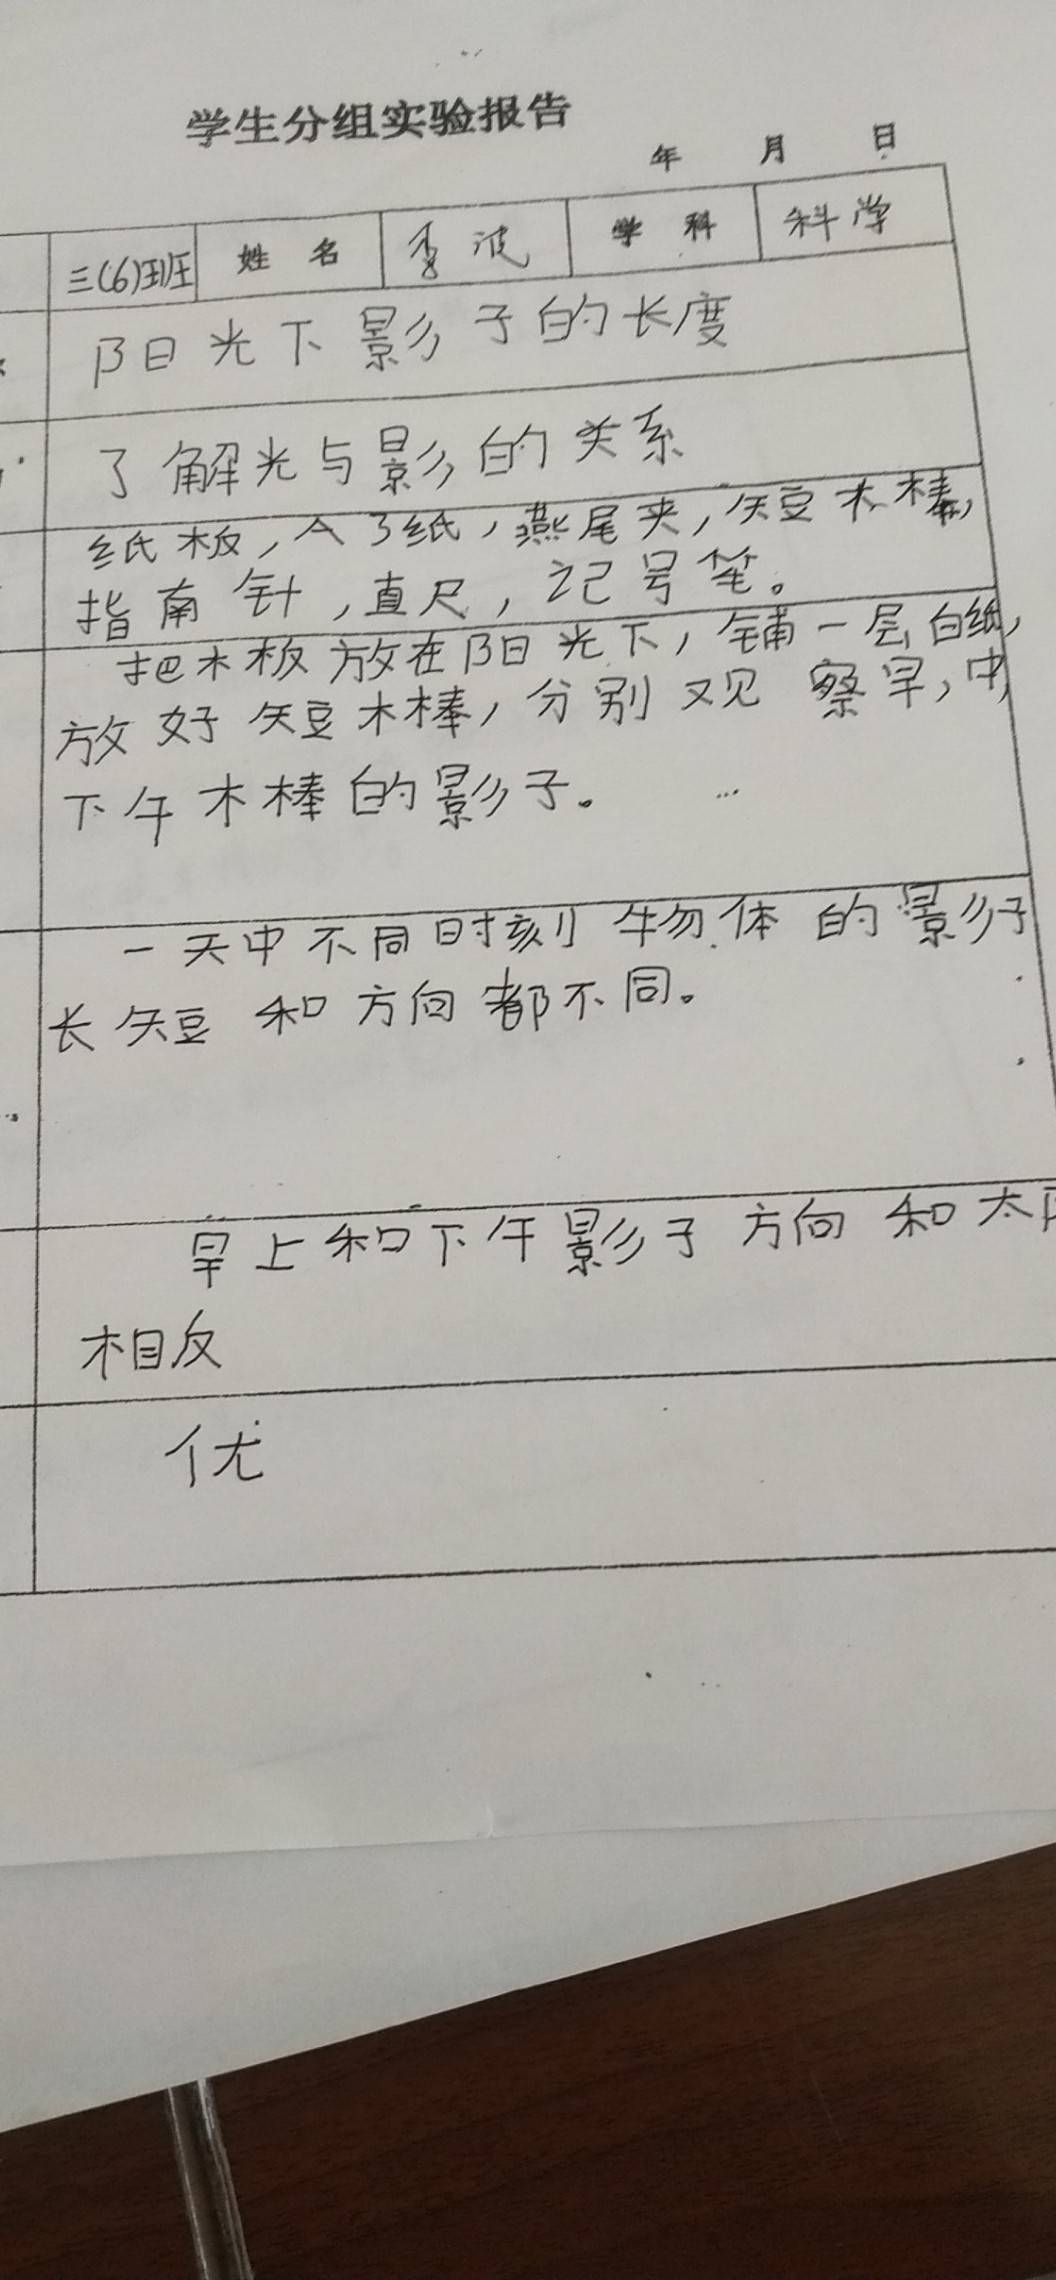 学生分组实验报告
年 月 日
三(6)班 姓 名 李波 学 科 科学
阳光下影子的长度
了解光与影的关系
纸板,A4纸,燕尾夹,短木棒,
指南针,直尺,记号笔。
把木板放在阳光下,铺一层白纸,
放好短木棒,分别观察早,中,
下午木棒的影子。
一天中不同时刻物体的影子
长短和方向都不同。
早上和下午影子方向和太
相反
优